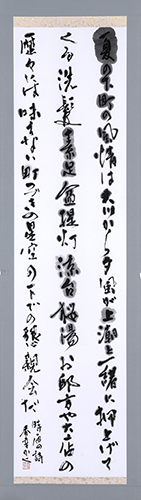 夏の下町の風情は大川から夕風が上潮と一緒に押上げて
くる洗髪素足盆提灯涼台桜湯お邸方や大店の
歴々には味えない町つづきの星空の下での懇親会だ
時雨の詩